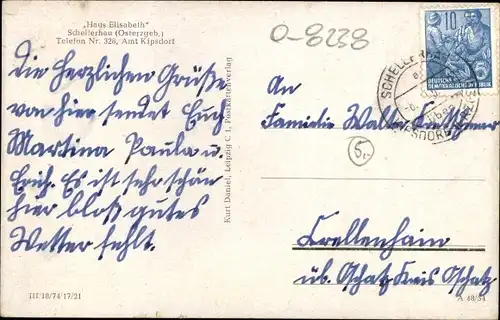 „Haus Elisabeth"
Schellerhau (Osterzgeb.)
Telefon Nr. 328, Amt Kipsdorf
O-8238
10
DEUTSCHE
DEMOKRATISCHE REPUBLIK
SCHELLERHAU
KIPSDORF
Die herzlichen Grüße
von hier sendet Euch
Martina Paula u.
Erich. Es ist sehr schön
hier bloß gutes
Wetter fehlt.
Kurt Daniel, Leipzig C 1, Postkartenverlag
An
Familie Walter
5,-
Crellenhain
üb. Oschatz Kreis Oschatz
III/18/74/17/21
A 48/54